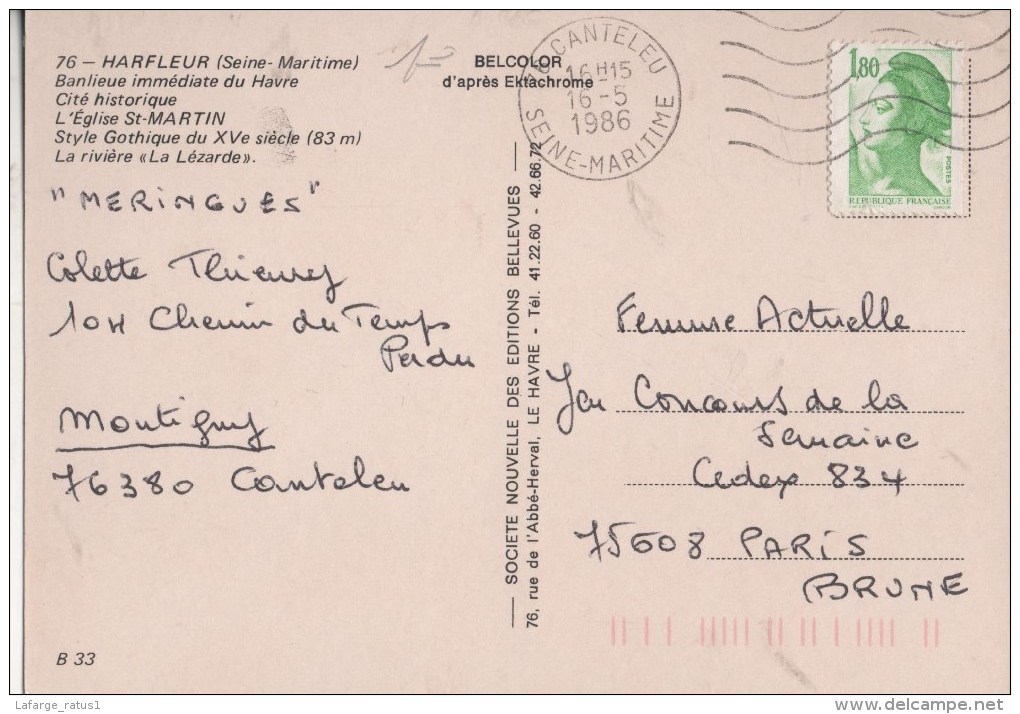 76 — HARFLEUR (Seine-Maritime)
Banlieue immédiate du Havre
Cité historique
L'Église St-MARTIN
Style Gothique du XVe siècle (83 m)
La rivière «La Lézarde».
"MERINGUES"
Colette Thieurey
10H Chemin du Temps
Perdu
Montigny
76380 Canteleu
B 33
BELCOLOR
d'après Ektachrome
— SOCIETE NOUVELLE DES EDITIONS BELLEVUES —
76, rue de l'Abbé-Herval, LE HAVRE - Tél. 41.22.60 - 42.66.72
76 CANTELEU
16H15
16-5
1986
SEINE-MARITIME
1,80
POSTES
REPUBLIQUE FRANÇAISE
Femme Actuelle
Jeu Concours de la
Semaine
Cedex 834
75608 PARIS
BRUNE
Lafarge_ratus1
delcampe.net